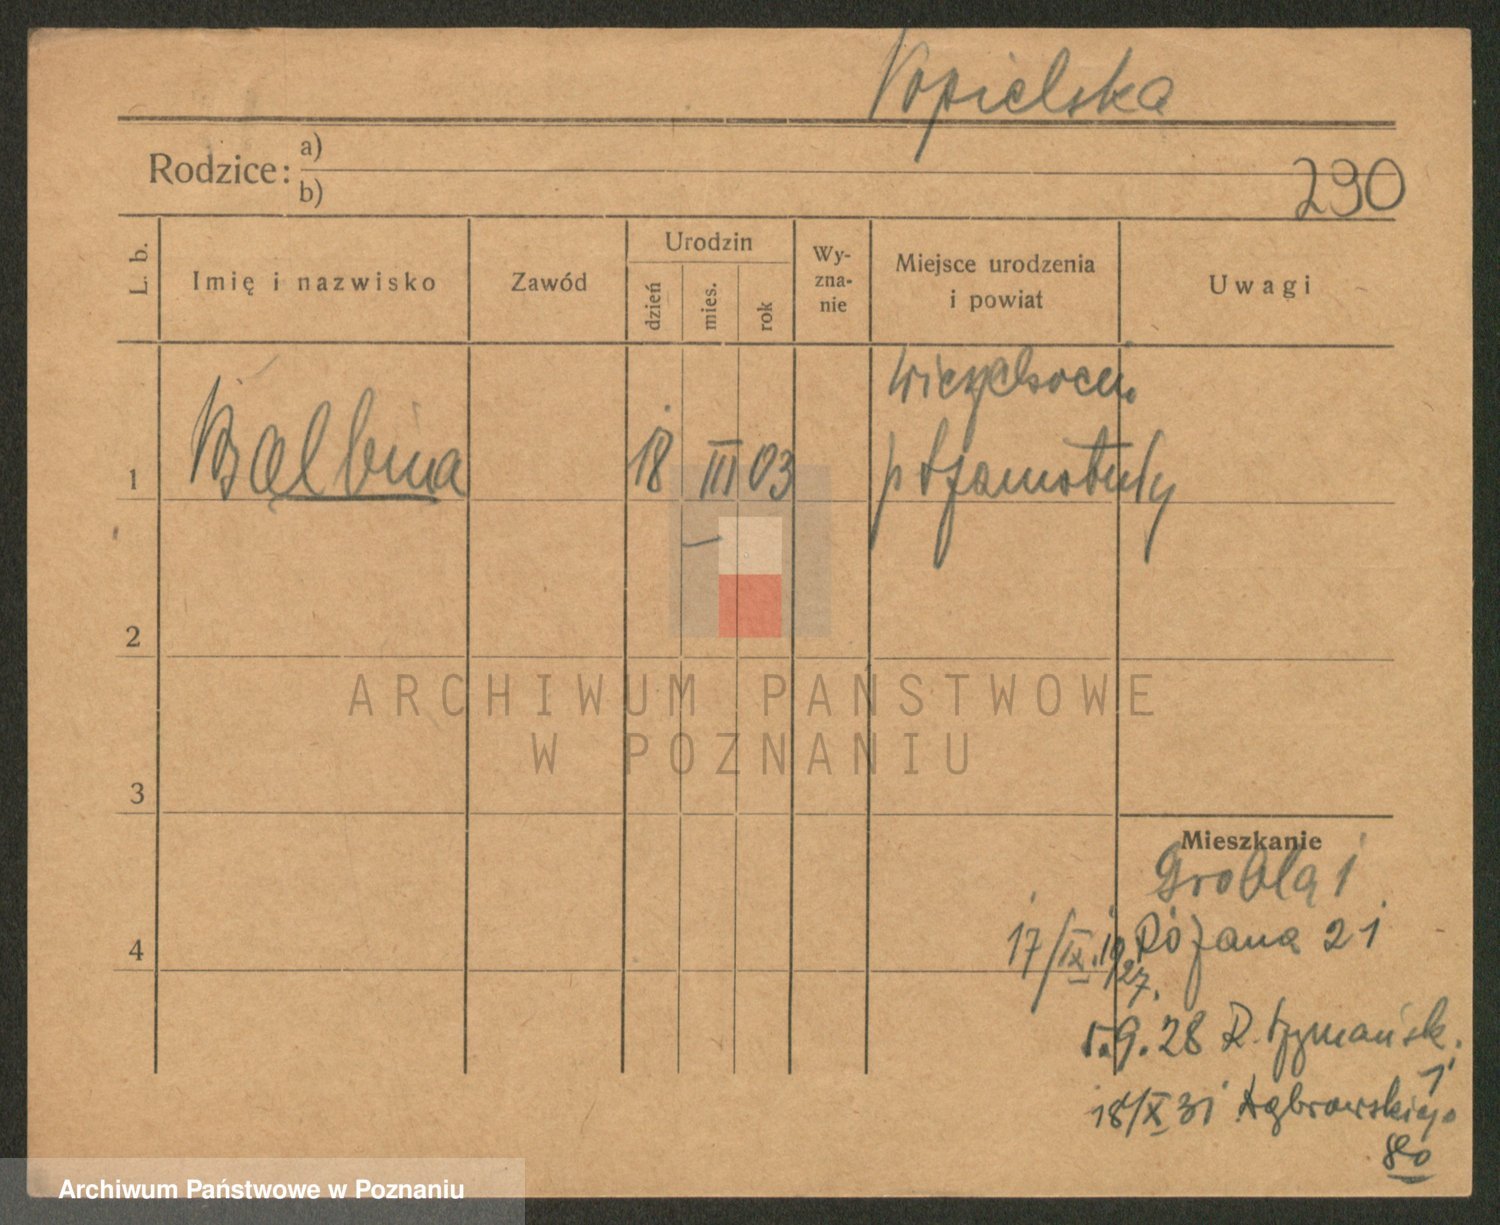 Popielska
Rodzice: a)
b)
290
L. b.
Imię i nazwisko
Zawód
Urodzin
dzień
mies.
rok
Wy-
zna-
nie
Miejsce urodzenia
i powiat
Uwagi
1
Balbina
18 III 03
p Szamotuły
2
3
4
Mieszkanie
Grobla 1
17/IX.1927. Różana 21
5.9.28 R. Szymańsk. 1
18/X 31 Dąbrowskiego
80
ARCHIWUM PAŃSTWOWE
W POZNANIU
Archiwum Państwowe w Poznaniu